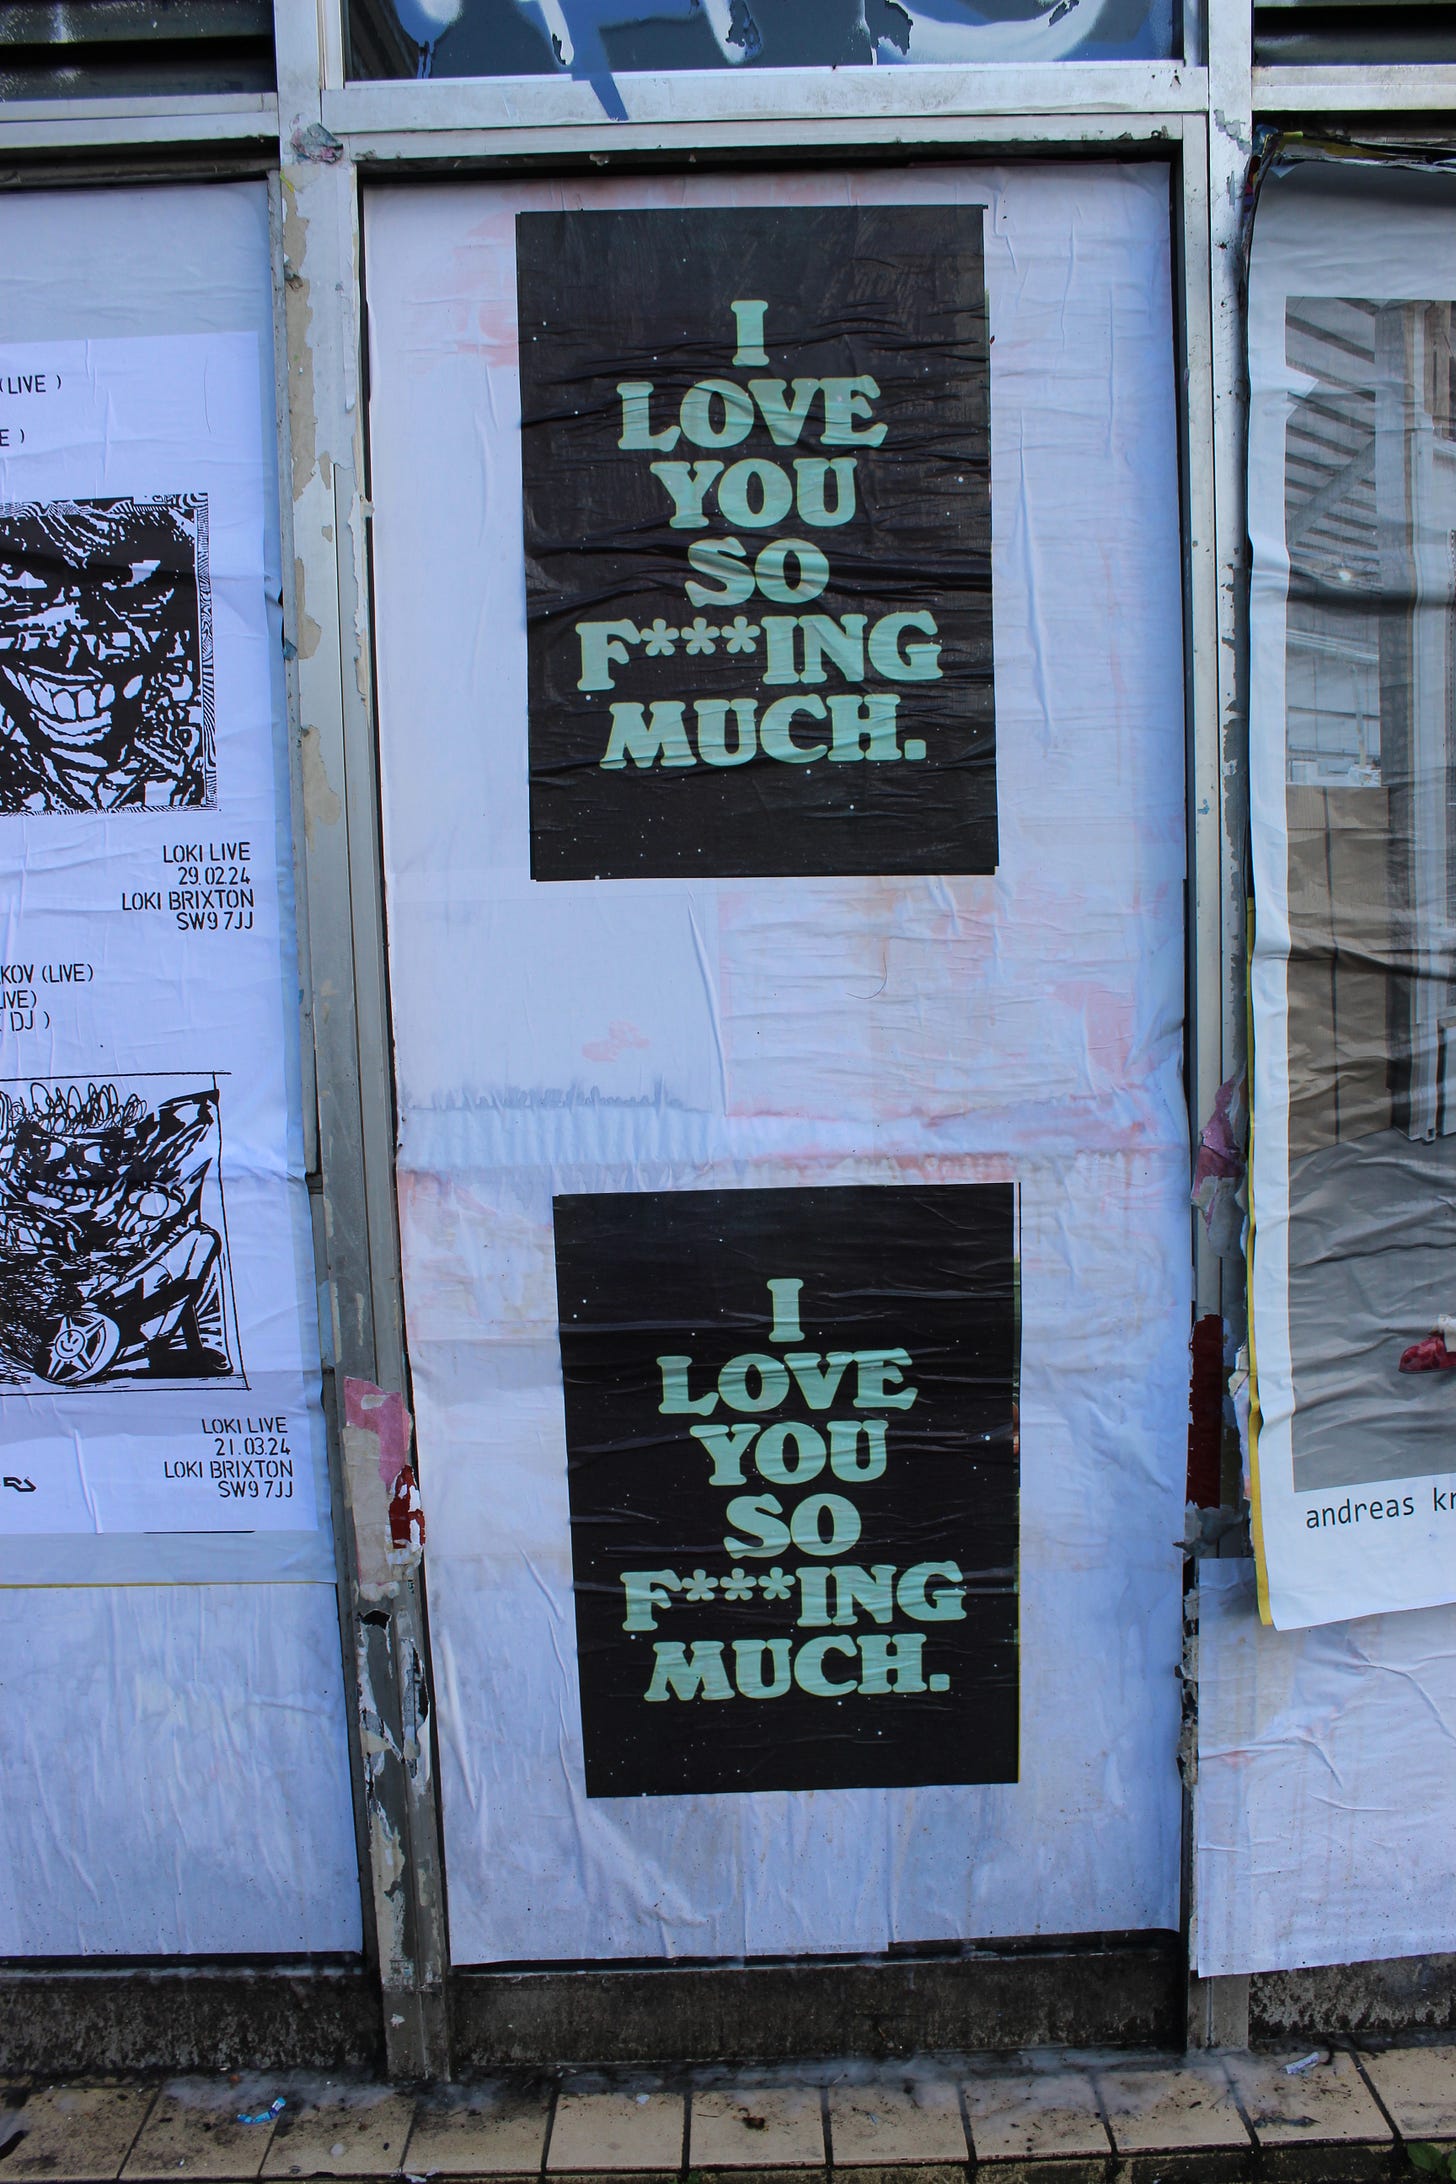 (LIVE )
E )
LOKI LIVE
29.02.24
LOKI BRIXTON
SW9 7JJ
KOV (LIVE)
LIVE)
DJ )
LOKI LIVE
21.03.24
LOKI BRIXTON
SW9 7JJ
I
LOVE
YOU
SO
F***ING
MUCH.
I
LOVE
YOU
SO
F***ING
MUCH.
andreas kr